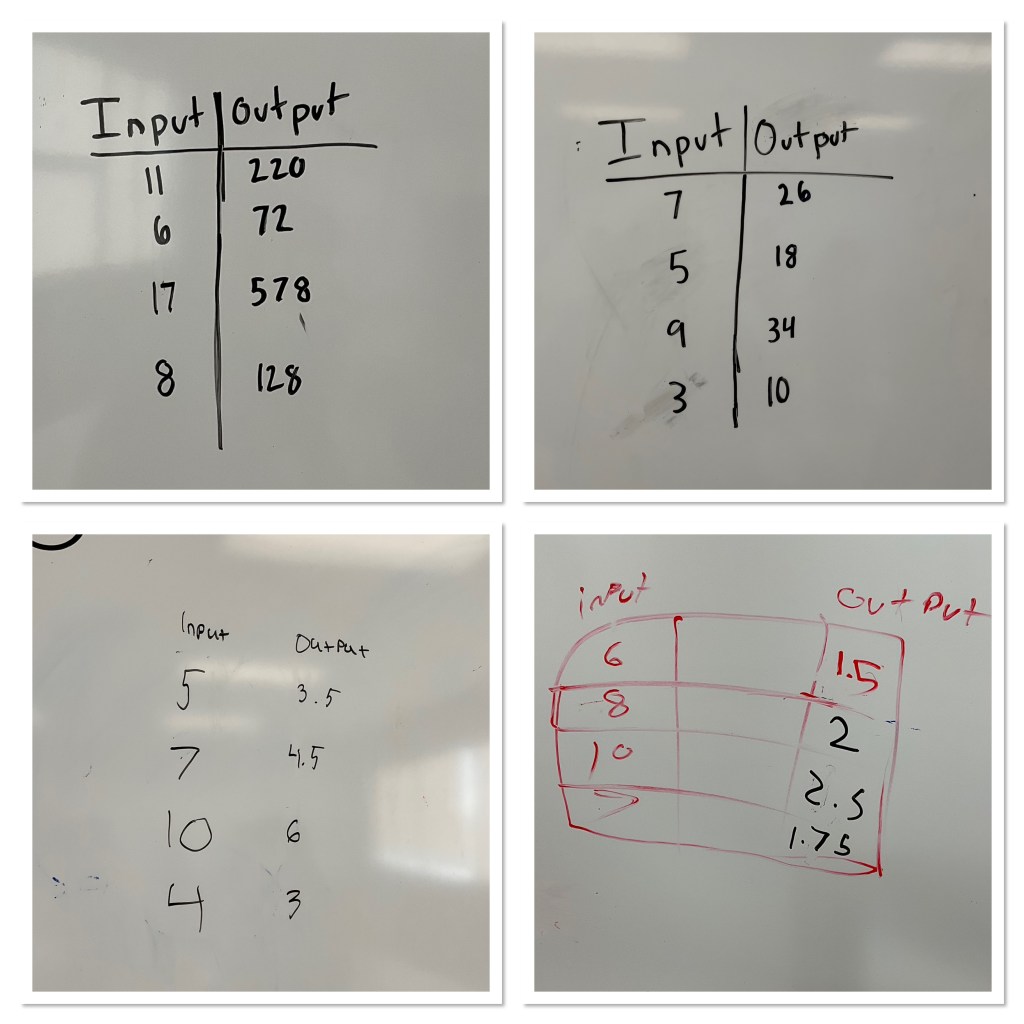 Input Output
11 220
6 72
17 578
8 128
Input Output
7 26
5 18
9 34
3 10
Input Output
5 3.5
7 4.5
10 6
4 3
input output
6 1.5
8 2
10 2.5
7 1.75